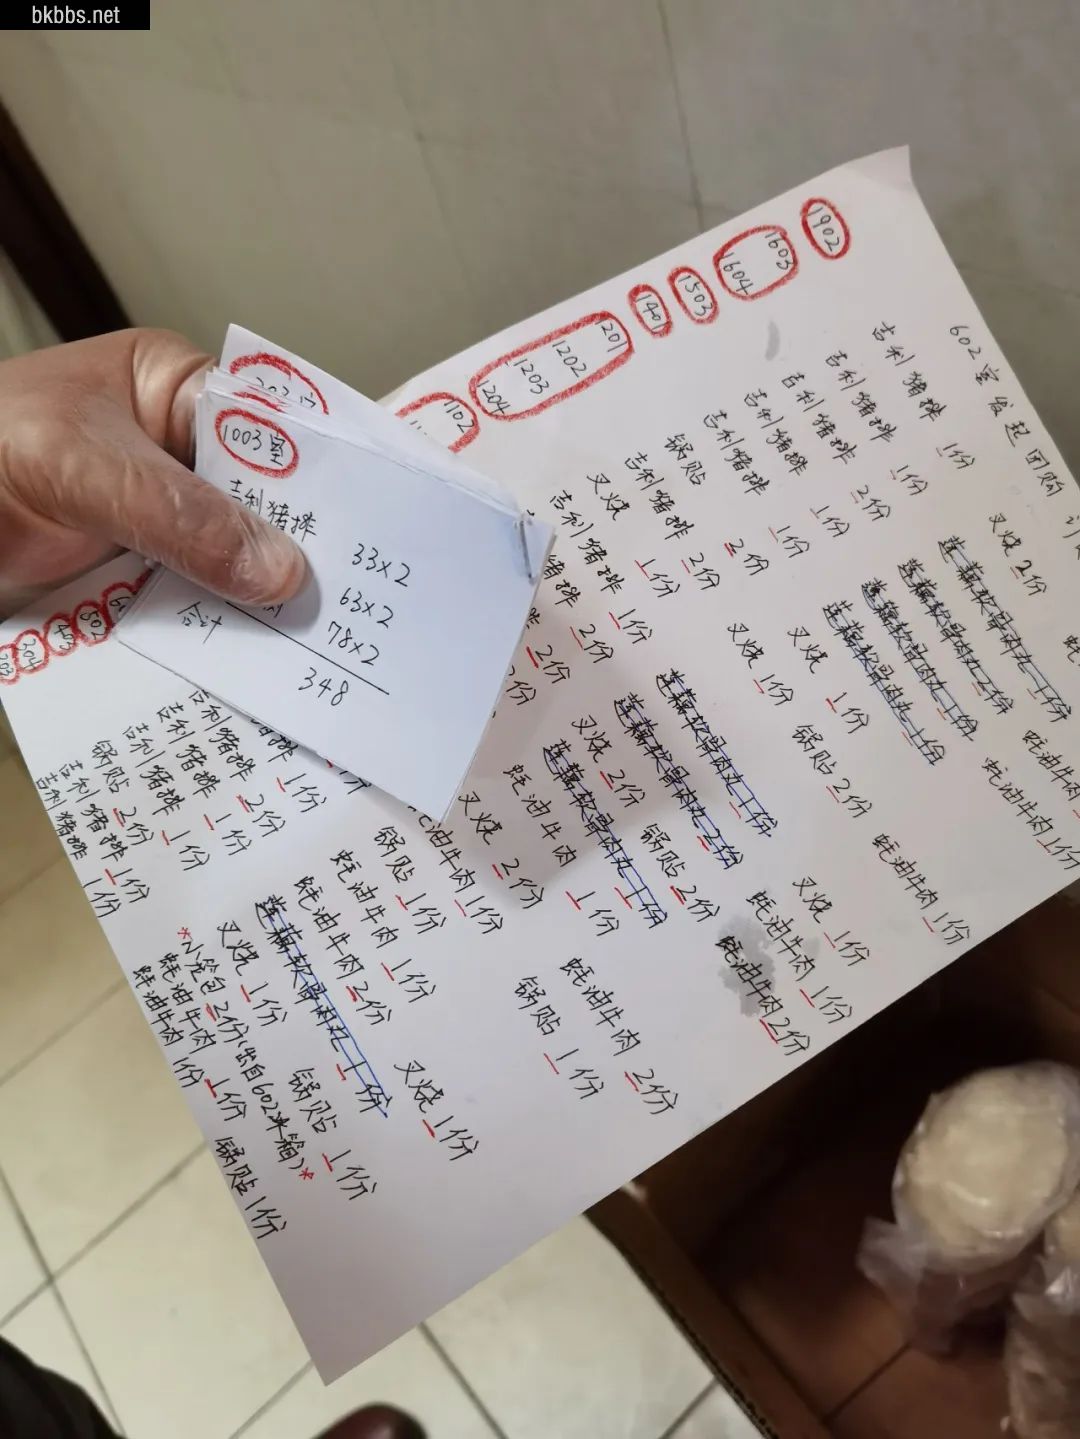 bkbbs.net
602室发起团购
1902
1603
1604
1503
1401
1201
1202
1203
1204
1102
602
502
403
204
203
吉利猪排 1份
叉烧 2份
吉利猪排 1份
莲藕软骨肉丸 1份
蚝油牛肉
吉利猪排 2份
莲藕软骨肉丸 2份
蚝油牛肉 1份
吉利猪排 1份
莲藕软骨肉丸 1份
吉利猪排 1份
莲藕软骨肉丸 1份
锅贴 2份
叉烧 1份
蚝油牛肉 1份
吉利猪排 2份
叉烧 1份
锅贴 2份
叉烧 1份
吉利猪排 1份
莲藕软骨肉丸 1份
叉烧 1份
猪排 2份
莲藕软骨肉丸 2份
蚝油牛肉 1份
2份
叉烧 2份
锅贴 2份
蚝油牛肉 2份
2份
莲藕软骨肉丸 1份
蚝油牛肉 1份
蚝油牛肉 2份
叉烧 2份
锅贴 1份
油牛肉 1份
锅贴 1份
猪排 1份
蚝油牛肉 1份
叉烧 1份
吉利猪排 2份
蚝油牛肉 2份
吉利猪排 1份
莲藕软骨肉丸 1份
吉利猪排 1份
叉烧 1份
锅贴 1份
锅贴 2份
*小笼包 2份(出自602冰箱)*
吉利猪排 1份
蚝油牛肉 1份
吉利猪排 1份
蚝油牛肉 1份
锅贴 1份
1003室
吉利猪排 33×2
63×2
78×2
合计 348